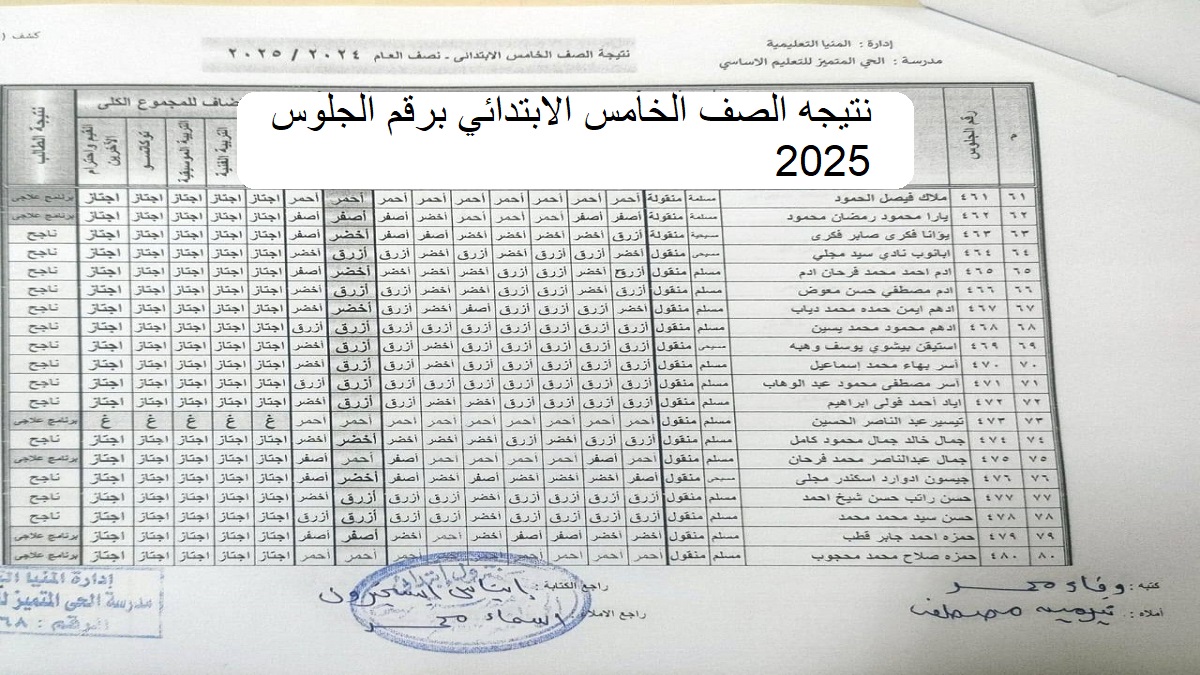 كشف (
إدارة : المنيا التعليمية
مدرسة : الحي المتميز للتعليم الاساسي
نتيجة الصف الخامس الابتدائى - نصف العام ٢٠٢٤ / ٢٠٢٥
نتيجه الصف الخامس الابتدائي برقم الجلوس
2025
م رقم الجلوس ضاف للمجموع الكلى التربية الفنية التربية الموسيقية توكاتسو القيم واحترام الآخرين نتيجة الطالب
٦١ ٤٦١ ملاك فيصل الحمود مسلمة منقولة أحمر أحمر أحمر أحمر أحمر أحمر أحمر أحمر أحمر اجتاز اجتاز اجتاز اجتاز اجتاز برنامج علاجى
٦٢ ٤٦٢ يارا محمود رمضان محمود مسلمة منقولة أصفر أصفر أحمر أحمر أحمر أخضر أصفر أصفر أصفر اجتاز اجتاز اجتاز اجتاز اجتاز برنامج علاجى
٦٣ ٤٦٣ يوانا فكرى صابر فكرى مسيحية منقولة أزرق أخضر أخضر أخضر أخضر أصفر أصفر أخضر أصفر اجتاز اجتاز اجتاز اجتاز اجتاز ناجح
٦٤ ٤٦٤ ابانوب نادي سيد مجلي مسيحى منقول أخضر أزرق أزرق أزرق أخضر أخضر أزرق أزرق أخضر اجتاز اجتاز اجتاز اجتاز اجتاز ناجح
٦٥ ٤٦٥ ادم احمد محمد فرحان ادم مسلم منقول أزرق أخضر أزرق أزرق أخضر أخضر أخضر أخضر أصفر اجتاز اجتاز اجتاز اجتاز اجتاز ناجح
٦٦ ٤٦٦ ادم مصطفي حسن معوض مسلم منقول أزرق أخضر أزرق أزرق أخضر أخضر أزرق أزرق أخضر اجتاز اجتاز اجتاز اجتاز اجتاز ناجح
٦٧ ٤٦٧ ادهم ايمن حمده محمد دياب مسلم منقول أخضر أزرق أزرق أخضر أصفر أزرق أخضر أخضر أخضر اجتاز اجتاز اجتاز اجتاز اجتاز ناجح
٦٨ ٤٦٨ ادهم محمود محمد يسين مسلم منقول أزرق أزرق أزرق أزرق أزرق أزرق أزرق أزرق أزرق اجتاز اجتاز اجتاز اجتاز اجتاز ناجح
٦٩ ٤٦٩ استيفن بيشوي يوسف وهبه مسيحى منقول أزرق أزرق أزرق أزرق أزرق أخضر أخضر أزرق أخضر اجتاز اجتاز اجتاز اجتاز اجتاز ناجح
٧٠ ٤٧٠ أسر بهاء محمد إسماعيل مسلم منقول أزرق أزرق أزرق أزرق أزرق أخضر أزرق أزرق أخضر اجتاز اجتاز اجتاز اجتاز اجتاز ناجح
٧١ ٤٧١ أسر مصطفى محمود عبد الوهاب مسلم منقول أزرق أزرق أزرق أزرق أزرق أزرق أزرق أزرق أزرق اجتاز اجتاز اجتاز اجتاز اجتاز ناجح
٧٢ ٤٧٢ اياد أحمد فولى ابراهيم مسلم منقول أزرق أزرق أزرق أزرق أخضر أخضر أزرق أزرق أخضر اجتاز اجتاز اجتاز اجتاز اجتاز ناجح
٧٣ ٤٧٣ تيسير عبد الناصر الحسين مسلم منقول أحمر أحمر أحمر أحمر أحمر أحمر أحمر أحمر أحمر غ غ غ غ غ برنامج علاجى
٧٤ ٤٧٤ جمال خالد جمال محمود كامل مسلم منقول أزرق أزرق أخضر أزرق أخضر أخضر أخضر أخضر أخضر اجتاز اجتاز اجتاز اجتاز اجتاز ناجح
٧٥ ٤٧٥ جمال عبدالناصر محمد فرحان مسلم منقول أحمر أصفر أحمر أحمر أحمر أحمر أصفر أحمر أصفر اجتاز اجتاز اجتاز اجتاز اجتاز برنامج علاجى
٧٦ ٤٧٦ جيسون ادوارد اسكندر مجلى مسيحى منقول أصفر أخضر أخضر أخضر أخضر أخضر أصفر أخضر أصفر اجتاز اجتاز اجتاز اجتاز اجتاز ناجح
٧٧ ٤٧٧ حسن راتب حسن شيخ احمد مسلم منقول أخضر أزرق أزرق أزرق أخضر أزرق أزرق أزرق أخضر اجتاز اجتاز اجتاز اجتاز اجتاز ناجح
٧٨ ٤٧٨ حسن سيد محمد محمد مسلم منقول أزرق أزرق أزرق أزرق أخضر أزرق أزرق أزرق أزرق اجتاز اجتاز اجتاز اجتاز اجتاز ناجح
٧٩ ٤٧٩ حمزه احمد جابر قطب مسلم منقول أحمر أصفر أصفر أصفر أخضر أحمر أخضر أصفر أصفر اجتاز اجتاز اجتاز اجتاز اجتاز برنامج علاجى
٨٠ ٤٨٠ حمزه صلاح محمد محجوب مسلم منقول أحمر أحمر أحمر أحمر أحمر أحمر أحمر أحمر أحمر اجتاز اجتاز اجتاز اجتاز اجتاز برنامج علاجى
كتبه : وفاء محمد
أملاه : مصطفى
راجع الكتابة : إيناس
راجع الاملاء : أسماء محمد
إدارة المنيا
مدرسة الحى المتميز